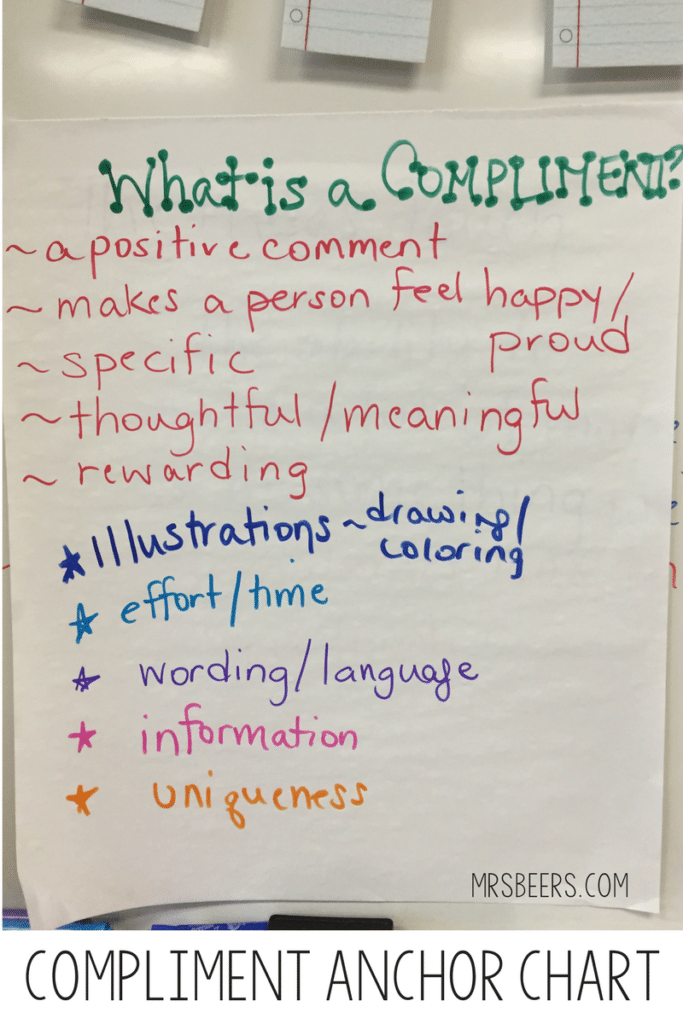 What is a COMPLIMENT?
~ a positive comment
~ makes a person feel happy/
proud
~ specific
~ thoughtful/meaningful
~ rewarding
★ Illustrations ~ drawing/
coloring
★ effort/time
★ wording/language
★ information
★ uniqueness
MRSBEERS.COM
COMPLIMENT ANCHOR CHART